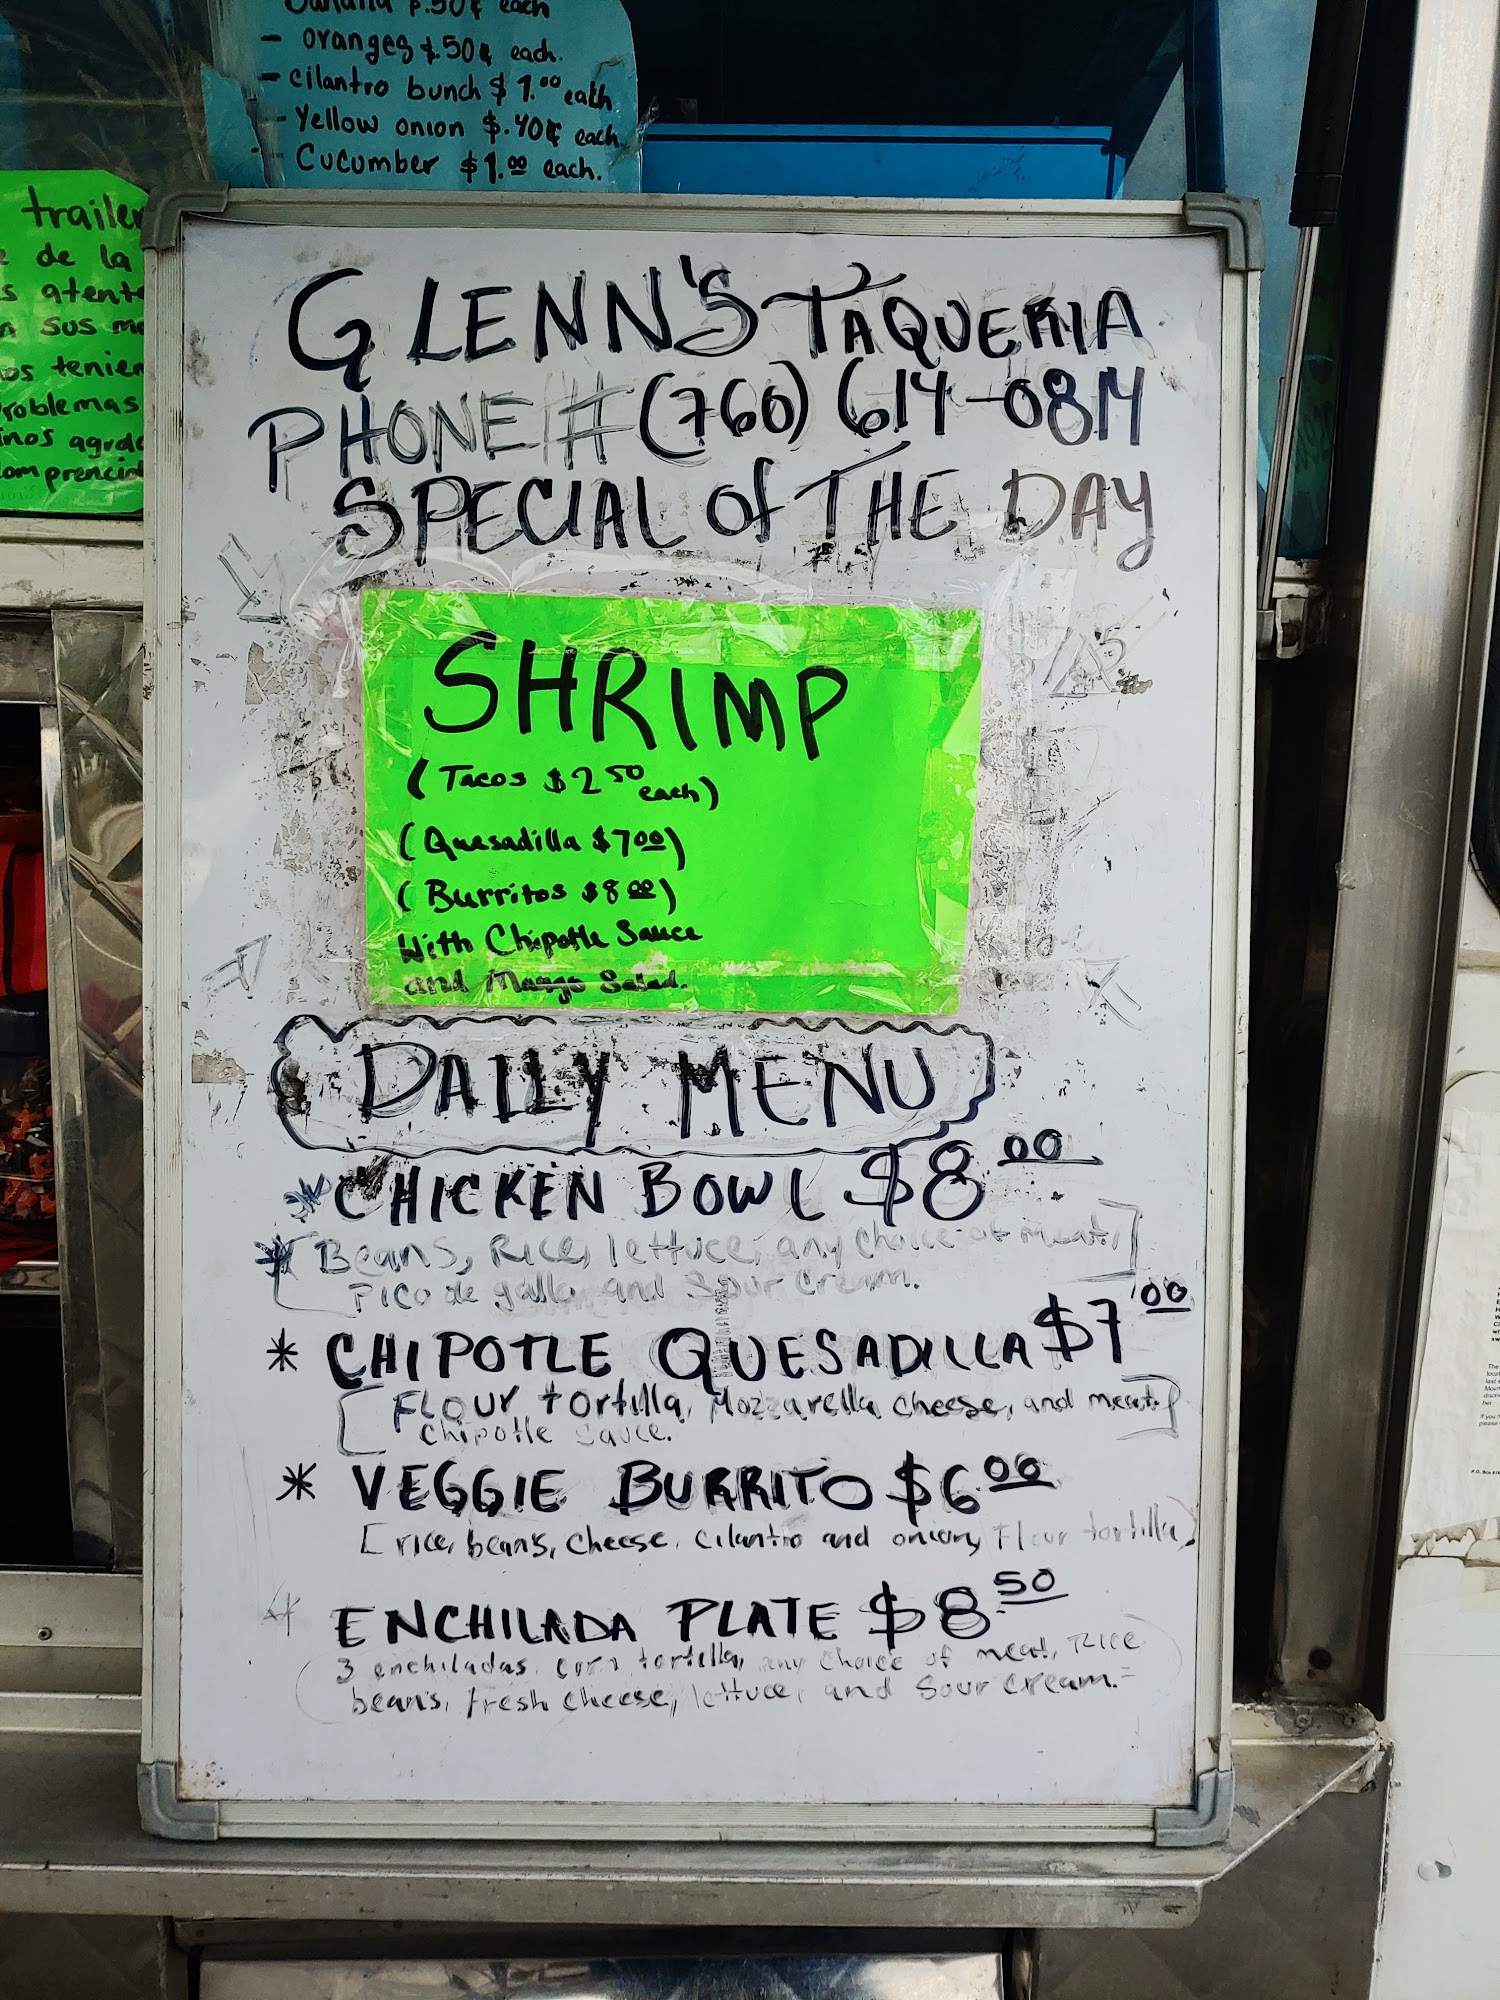 - oranges $.50¢ each.
- cilantro bunch $1.00 each
- Yellow onion $.40¢ each
- Cucumber $1.00 each.
trailer
de la
sus
problemas
GLENN'S TAQUERIA
PHONE # (760) 614-0814
SPECIAL of THE DAY
SHRIMP
(Tacos $2 50 each)
(Quesadilla $7 00)
(Burritos $8 00)
With Chipotle Sauce
and Mango Salad.
DAILY MENU
* CHICKEN BOWL $8 00
* [Beans, Rice, lettuce, any choice of meat,]
Pico de gallo and Sour cream.
* CHIPOTLE QUESADILLA $7 00
[FLOUR tortilla, Mozzarella cheese, and meat.]
Chipotle sauce.
* VEGGIE BURRITO $6 00
[rice, beans, cheese, cilantro and onion, Flour tortilla]
* ENCHILADA PLATE $8.50
(3 enchiladas, corn tortilla, any choice of meat, rice
beans, fresh cheese, lettuce, and Sour cream.)